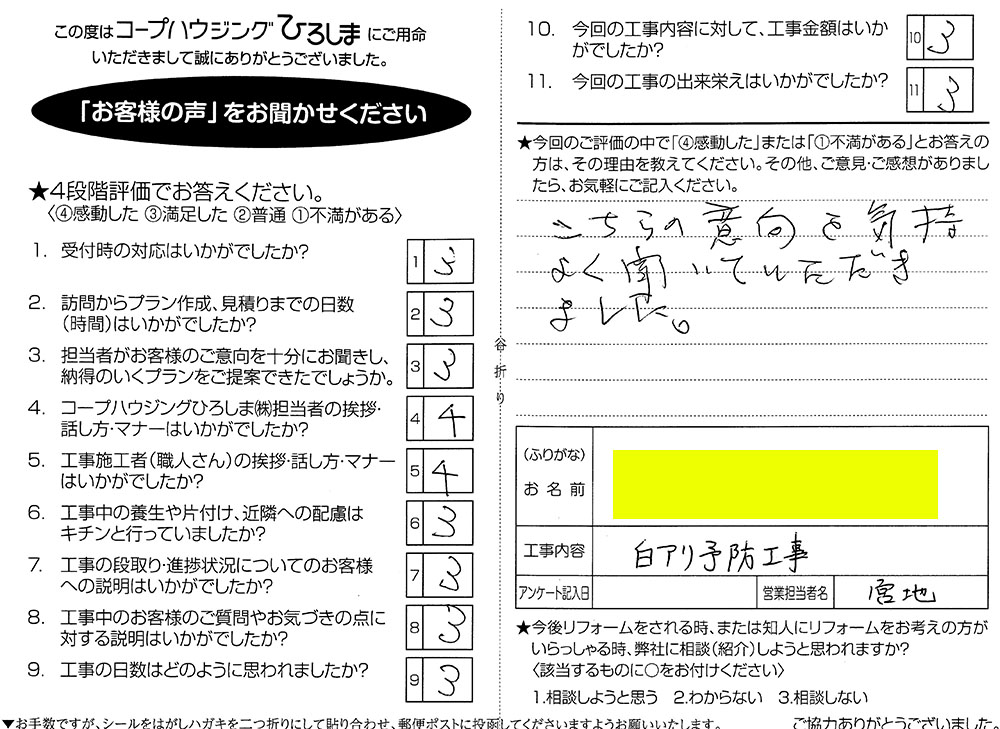 この度はコープハウジングひろしまにご用命
いただきまして誠にありがとうございました。
「お客様の声」をお聞かせください
★4段階評価でお答えください。
〈④感動した ③満足した ②普通 ①不満がある〉
1. 受付時の対応はいかがでしたか? 1 3
2. 訪問からプラン作成、見積りまでの日数
(時間)はいかがでしたか? 2 3
3. 担当者がお客様のご意向を十分にお聞きし、
納得のいくプランをご提案できたでしょうか。 3 3
4. コープハウジングひろしま㈱担当者の挨拶・
話し方・マナーはいかがでしたか? 4 4
5. 工事施工者(職人さん)の挨拶・話し方・マナー
はいかがでしたか? 5 4
6. 工事中の養生や片付け、近隣への配慮は
キチンと行っていましたか? 6 3
7. 工事の段取り・進捗状況についてのお客様
への説明はいかがでしたか? 7 3
8. 工事中のお客様のご質問やお気づきの点に
対する説明はいかがでしたか? 8 3
9. 工事の日数はどのように思われましたか? 9 3
谷折り
10. 今回の工事内容に対して、工事金額はいか
がでしたか? 10 3
11. 今回の工事の出来栄えはいかがでしたか? 11 3
★今回のご評価の中で「④感動した」または「①不満がある」とお答えの
方は、その理由を教えてください。その他、ご意見・ご感想がありまし
たら、お気軽にご記入ください。
こちらの意向を気持
よく聞いていただき
ました。
(ふりがな)
お名前
工事内容 白アリ予防工事
アンケート記入日 営業担当者名 宮地
★今後リフォームをされる時、または知人にリフォームをお考えの方が
いらっしゃる時、弊社に相談(紹介)しようと思われますか?
〈該当するものに○をお付けください〉
1.相談しようと思う 2.わからない 3.相談しない
▼お手数ですが、シールをはがしハガキを二つ折りにして貼り合わせ、郵便ポストに投函してくださいますようお願いいたします。
ご協力ありがとうございました。